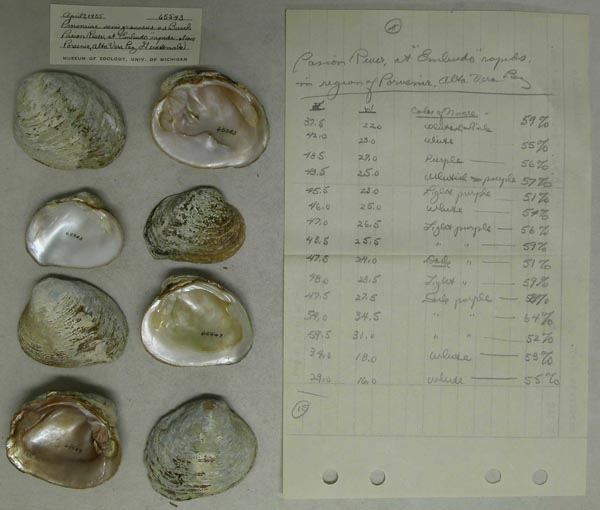 April 1935 65543
Pasion River, at "Embudo" rapids, above
Porvenir, Alta Vera Paz, (Guatemala).
MUSEUM OF ZOOLOGY, UNIV. OF MICHIGAN
Pasion River, at "Embudo" rapids,
in region of Porvenir, Alta Vera Paz
Color of Nacre
37.5 22.0 59%
42.0 23.0 White 55%
48.5 27.0 Purple 56%
43.5 25.0 Whitish purple 57%
45.5 23.0 Light purple 51%
46.0 25.0 White 54%
47.0 26.5 Light purple 56%
43.5 25.5 " " 59%
47.5 24.0 Dark " 51%
48.0 28.5 Light " 59%
47.5 27.5 Dark purple
54.0 34.5 " " 64%
59.5 31.0 " " 52%
34.0 18.0 White 53%
29.0 16.0 White 55%
15